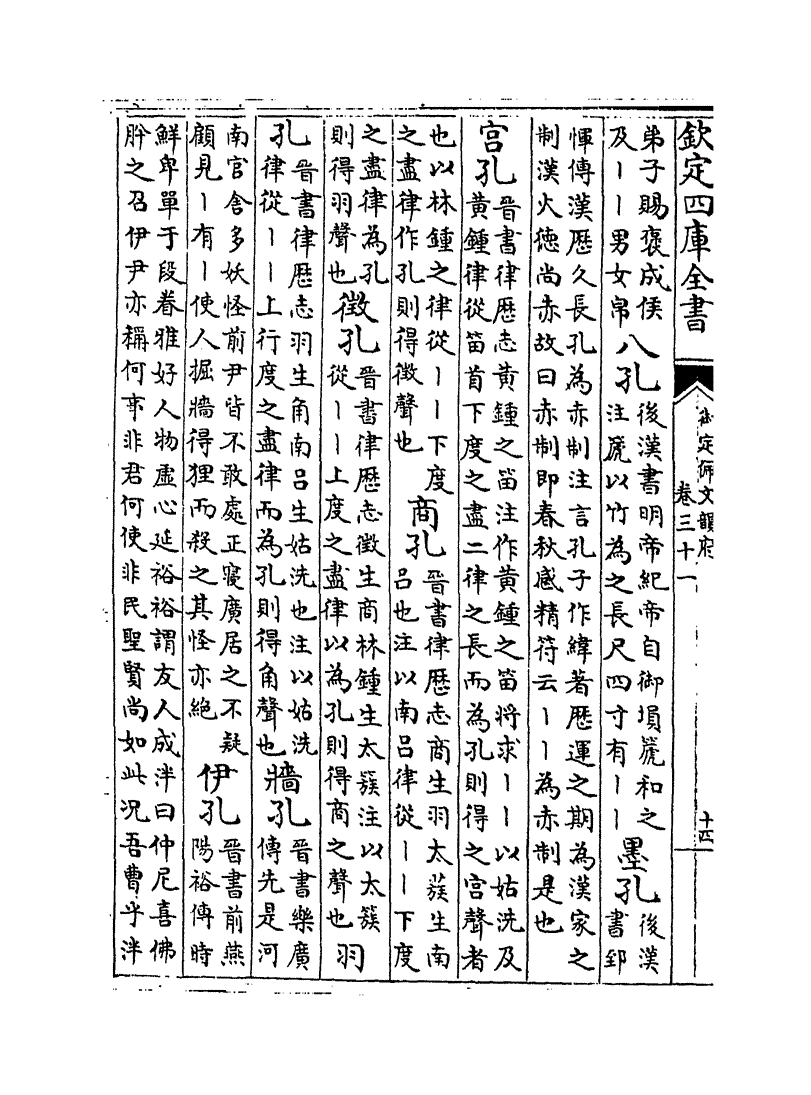 欽定四庫全書
御定佩文韻府
卷三十一
十四
弟子賜褒成侯
及丨丨男女帛
八孔
後漢書明帝紀帝自御塤箎和之
注箎以竹為之長尺四寸有丨丨
墨孔
後漢
書郅
惲傳漢歷久長孔為赤制注言孔子作緯著歷運之期為漢家之
制漢火徳尚赤故曰赤制即春秋感精符云丨丨為赤制是也
宫孔
晉書律歷志黄鍾之笛注作黄鍾之笛將求丨丨以姑洗及
黄鍾律從笛首下度之盡二律之長而為孔則得之宫聲者
也以林鍾之律從丨丨下度
之盡律作孔則得徵聲也
商孔
晉書律歷志商生羽太蔟生南
吕也注以南吕律從丨丨下度
之盡律為孔
則得羽聲也
徵孔
晉書律歷志徵生商林鍾生太蔟注以太蔟
從丨丨上度之盡律以為孔則得商之聲也
羽
孔
晉書律歷志羽生角南吕生姑洗也注以姑洗
律從丨丨上行度之盡律而為孔則得角聲也
牆孔
晉書樂廣
傳先是河
南官舍多妖怪前尹皆不敢處正寢廣居之不疑
顧見丨有丨使人掘牆得狸而殺之其怪亦絶
伊孔
晉書前燕
陽裕傳時
鮮卑單于段眷雅好人物虚心延裕裕謂友人成泮曰仲尼喜佛
肸之召伊尹亦稱何事非君何使非民聖賢尚如此况吾曹乎泮